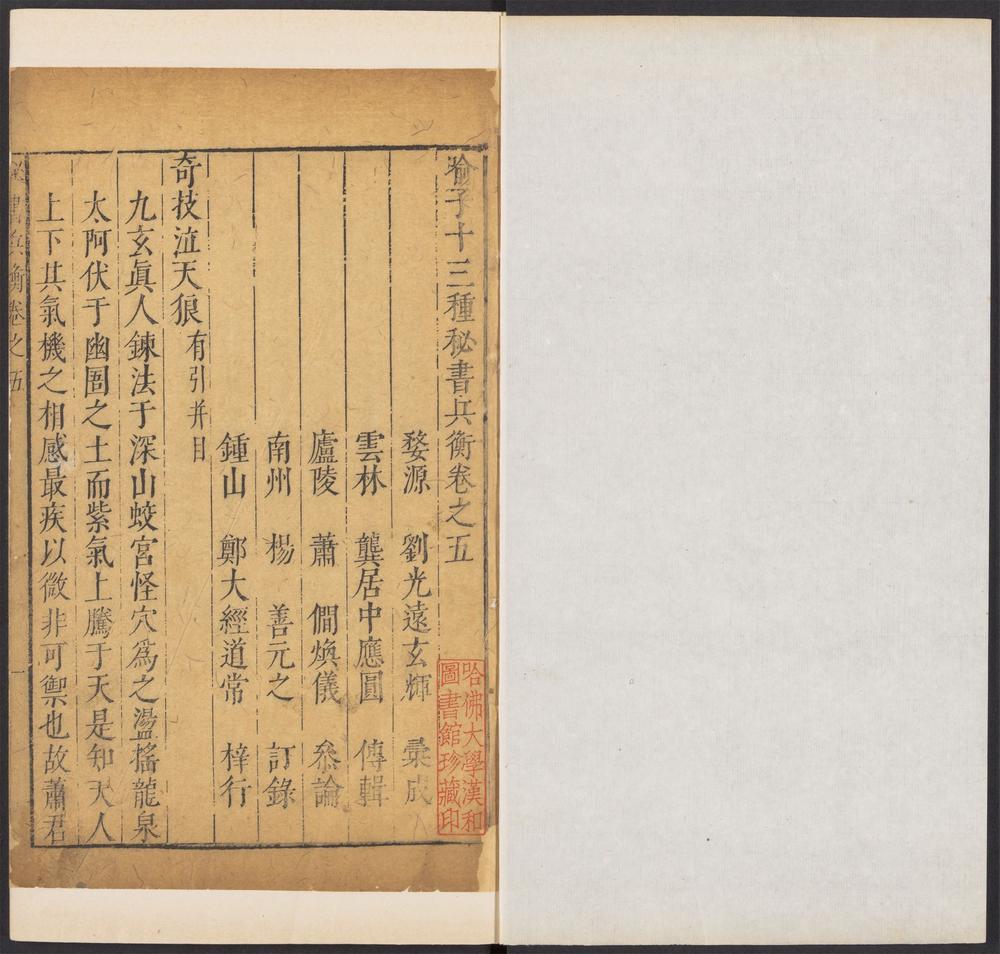 喻子十三種秘書兵衡卷之五
婺源 劉光遠玄輝 彙成
雲林 龔居中應圓 傳輯
廬陵 蕭 僩煥儀 叅論
南州 楊 善元之 訂錄
鍾山 鄭大經道常 梓行
奇技泣天狼有引并目
九玄眞人鍊法于深山蛟宮怪穴爲之盪搖龍泉
太阿伏于幽圄之土而紫氣上騰于天是知天人
上下其氣機之相感最疾以微非可禦也故蕭君
秘書兵衡卷之五
一
哈佛大學漢和
圖書館珍藏印